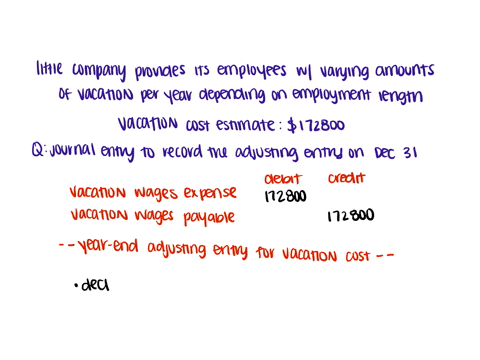 little company provides its employees w/ varying amounts
of vacation per year depending on employment length
vacation cost estimate: $172800
Q: journal entry to record the adjusting entry on Dec 31
debit credit
vacation wages expense 172800
vacation wages payable 172800
--year-end adjusting entry for vacation cost--
• decl